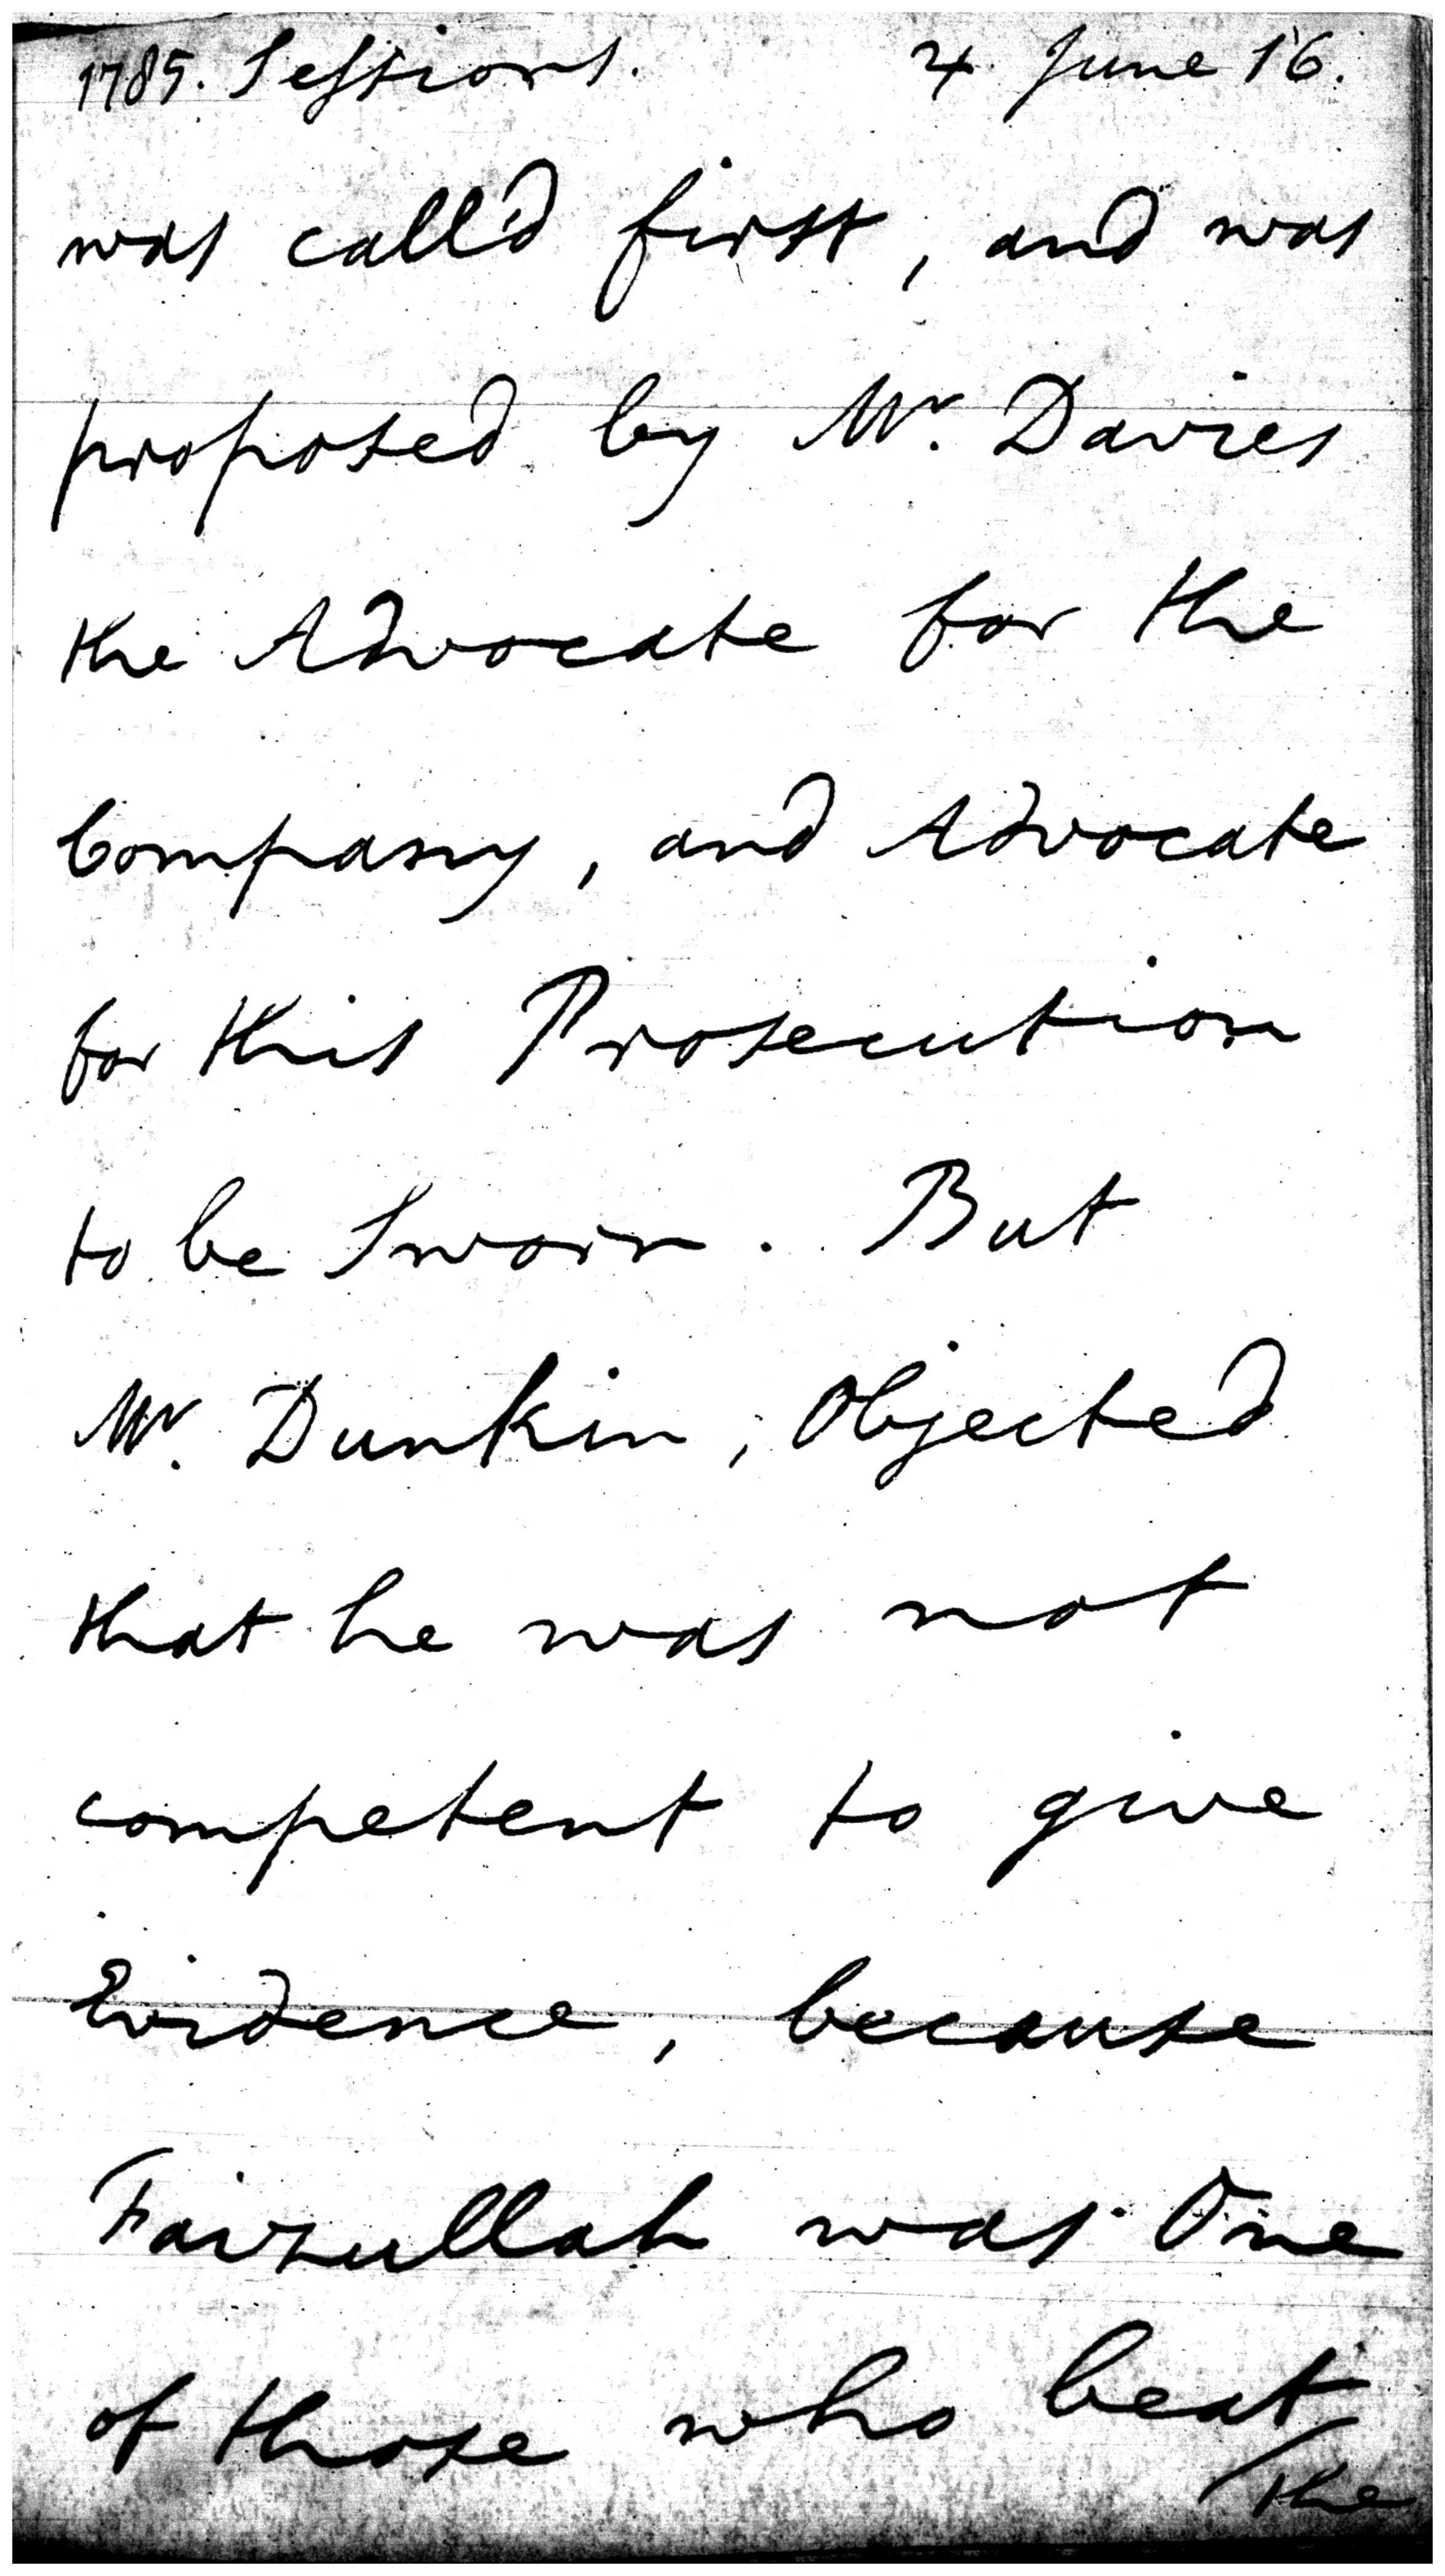 1785. Sessions. 4 June 16.
was call'd first, and was
proposed by Mr. Davies
the Advocate for the
Company, and Advocate
for this Prosecution
to be Sworn. But
Mr. Dunkin, Objected
that he was not
competent to give
Evidence, because
Faizullah was One
of those who beat
the